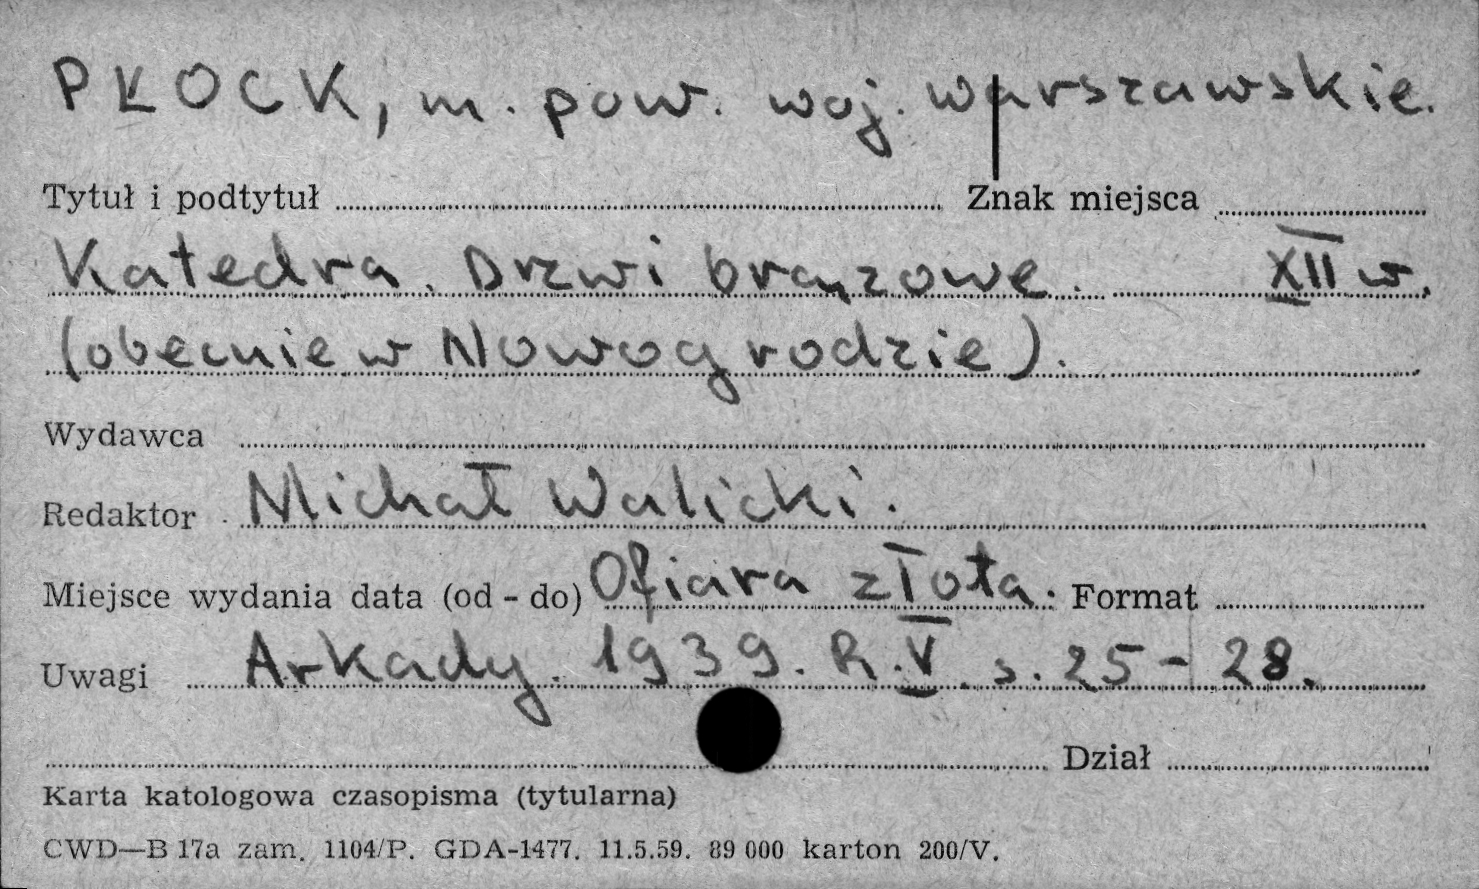 PŁOCK, m. pow. woj. warszawskie.
Tytuł i podtytuł Znak miejsca
Katedra. Drzwi brązowe. XII w.
(obecnie w Nowogrodzie).
Wydawca
Redaktor Michał Walicki.
Miejsce wydania data (od - do) Ofiara złota. Format
Uwagi Arkady. 1939. R. V. s. 25 - 28.
Dział
Karta katologowa czasopisma (tytularna)
CWD—B 17a zam. 1104/P. GDA-1477. 11.5.59. 89 000 karton 200/V.